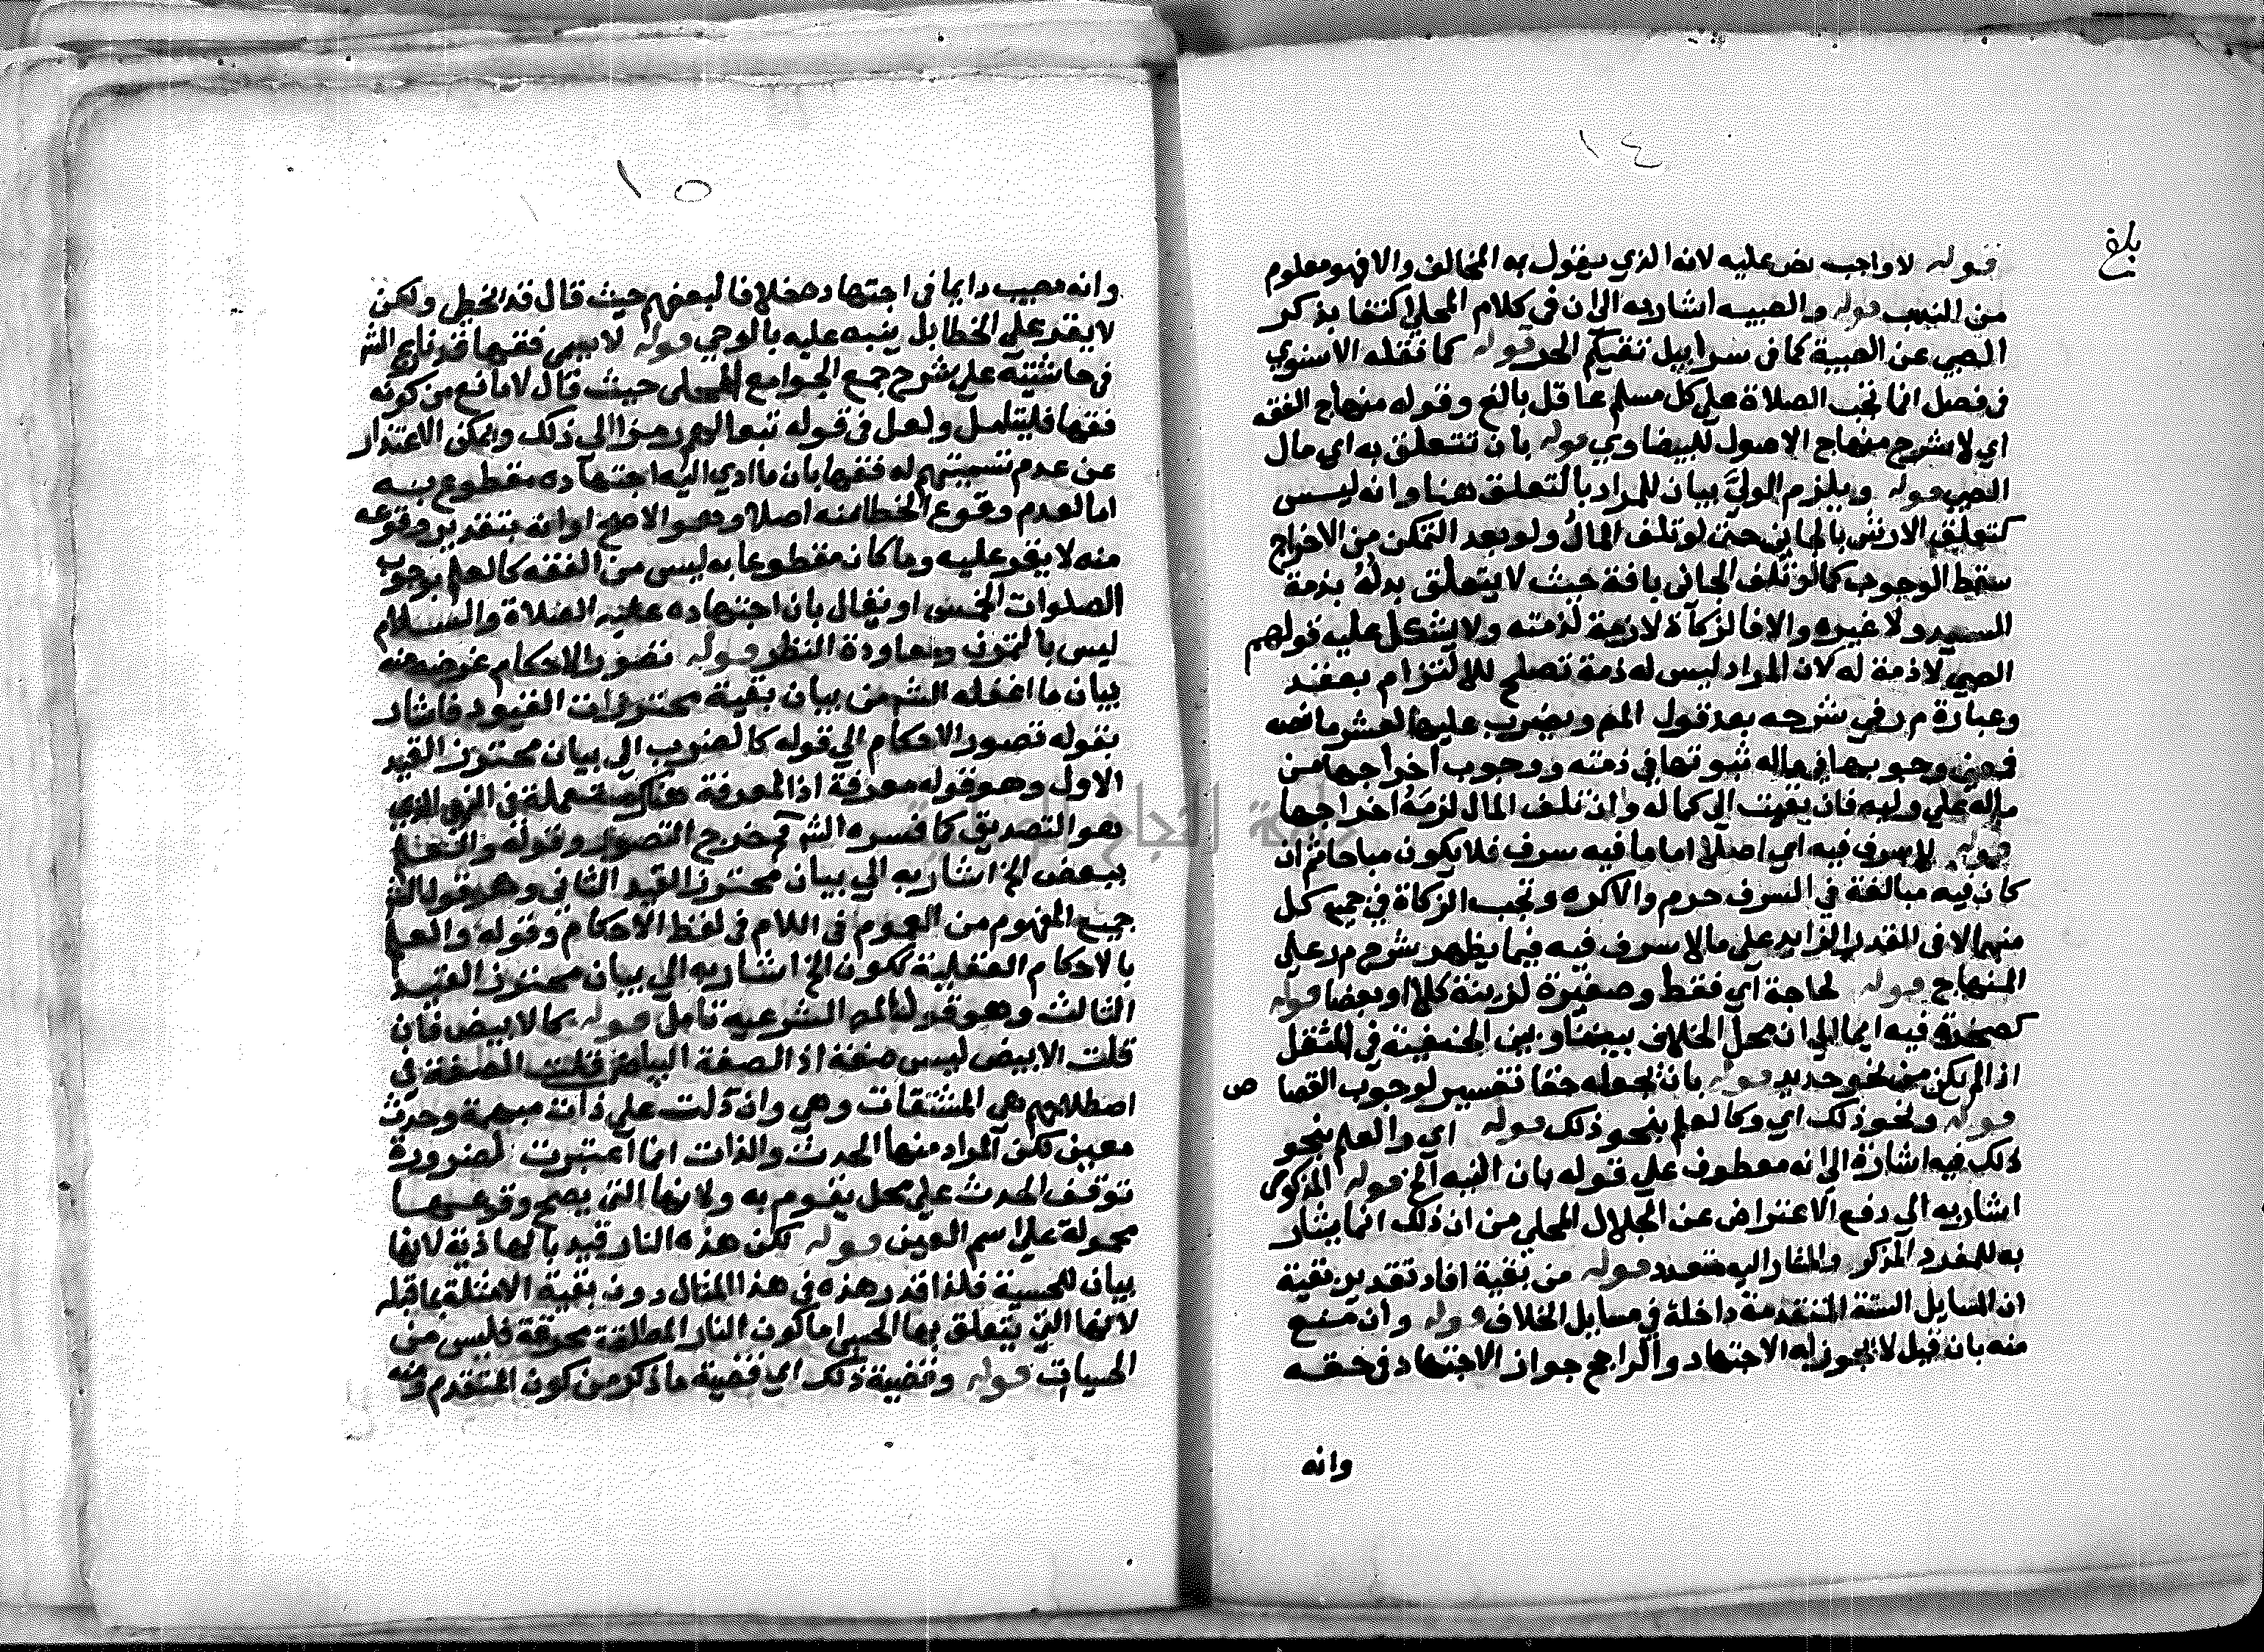 ١٤
بلغ
قوله لا واجب نص عليه لانه الذي يقول به المخالف والا فهو معلوم
من الندب قوله والصبيه اشار به الى ان في كلام المحلي اكتفا بذكر
الصبي عن الصبية كما في سرابيل تقيكم الحر قوله كما نقله الاسنوي
في فصل انما تجب الصلاة على كل مسلم عاقل بالغ وقوله منهاج الفقه
اي لا شرح منهاج الاصول للبيضاوي قوله بان تتعلق به اي مال
الصبي قوله ويلزم الولي بيان للمراد بالتعلق هنا وانه ليس
كتعلق الارش بالجاني حتى لو تلف المال ولو بعد التمكن من الاخراج
سقط الوجوب كما لو تلف الجاني بافة حيث لا يتعلق بدله بذمة
السيد ولا غيره والا فالزكاة لازمة لذمته ولا يشكل عليه قولهم
الصبي لا ذمة له لان المراد ليس له ذمة تصلح للالتزام بعقد
وعبارة م ر في شرحه بعد قول المص ويضرب عليها العشر ما نصه
فمعنى وجوبها في ماله ثبوتها في ذمته ووجوب اخراجها من
ماله على وليه فان بقيت الى كماله وان تلف المال لزمه اخراجها
قوله لا سرف فيه اي اصلا اما ما فيه سرف فلا يكون مباحا ثم ان
كان فيه مبالغة في السرف حرم والا كره وتجب الزكاة في جميع كل
منهما لا في القدر الزايد على مالا سرف فيه فيما يظهر شرح م ر على
المنهاج قوله لحاجة اي فقط وصغيرة لزينة كلا او بعضا قوله
كصخرة فيه ايما الى ان محل الخلاف بيننا وبين الحنفية في المثقل
اذا لم يكن من نحو حديد قوله بان نجعله حقا تفسير لوجوب القصا ص
قوله ونحو ذلك اي وكالعلم بنحو ذلك قوله اي والعلم بنحو
ذلك فيه اشارة الى انه معطوف على قوله بان النيه الخ قوله المذكور
اشار به الى دفع الاعتراض عن الجلال المحلي من ان ذلك انما يشار
به للمفرد المذكر والمشار اليه متعدد قوله من بقية افاد تقدير بقية
ان المسايل الستة المتقدمة داخلة في مسايل الخلاف قوله وان منع
منه بان قيل لا يجوز له الاجتهاد والراجح جواز الاجتهاد في حقه
وانه
١٥
وانه مصيب دايما في اجتهاده خلافا لبعضهم حيث قال قد يخطى ولكن
لا يقر على الخطا بل ينبه عليه بالوحي قوله لا يسمى فقها قد نازع الش
في حاشيته على شرح جمع الجوامع للمحلي حيث قال لا مانع من كونه
فقها فليتامل ولعل في قوله تبعا لهم رمزا الى ذلك ويمكن الاعتذار
عن عدم تسميتهم له فقها بان ما ادي اليه اجتهاده مقطوع به
اما لعدم وقوع الخطا منه اصلا وهو الاصح او انه بتقدير وقوعه
منه لا يقر عليه وما كان مقطوعا به ليس من الفقه كالعلم بوجوب
الصلوات الخمس او يقال بان اجتهاده عليه الصلاة والسلام
ليس بالتمرن ومعاودة النظر قوله تصور الاحكام غرضه منه
بيان ما اغفله الش من بيان بقية محترزات القيود فاشار
بقوله تصور الاحكام الى قوله كالضرب الى بيان محترز القيد
الاول وهو قوله معرفة اذ المعرفة هنا مستعملة في النوع الذي
هو التصديق كما فسره الش فخرج التصور وقوله والعلم
ببعض الخ اشار به الى بيان محترز القيد الثاني وهو قول الش
جميع المفهوم من العموم في اللام في لفظ الاحكام وقوله والعلم
بالاحكام العقلية ككون الخ اشار به الى بيان محترز القيد
الثالث وهو قولنا المص الشرعيه تامل قوله كالابيض فان
قلت الابيض ليس صفة اذ الصفة البياض قلت الصفة في
اصطلاحهم هي المشتقات وهي وان دلت على ذات مبهمة وحدث
معين لكن المراد منها الحدث والذات انما اعتبرت لضرورة
توقف الحدث على محل يقوم به ولانها التي يصح وقوعها
محمولة على اسم العين قوله لكن هذه النار قيد بالهاذية لانها
بيان للحسية فلذا قدر هذه في هذا المثال دون بقية الامثلة بما قبله
لانها التي يتعلق بها الحس اما كون النار المطلقة محرقة فليس من
الحسيات قوله وقضية ذلك اي قضية ما ذكر من كون المتقدم منه